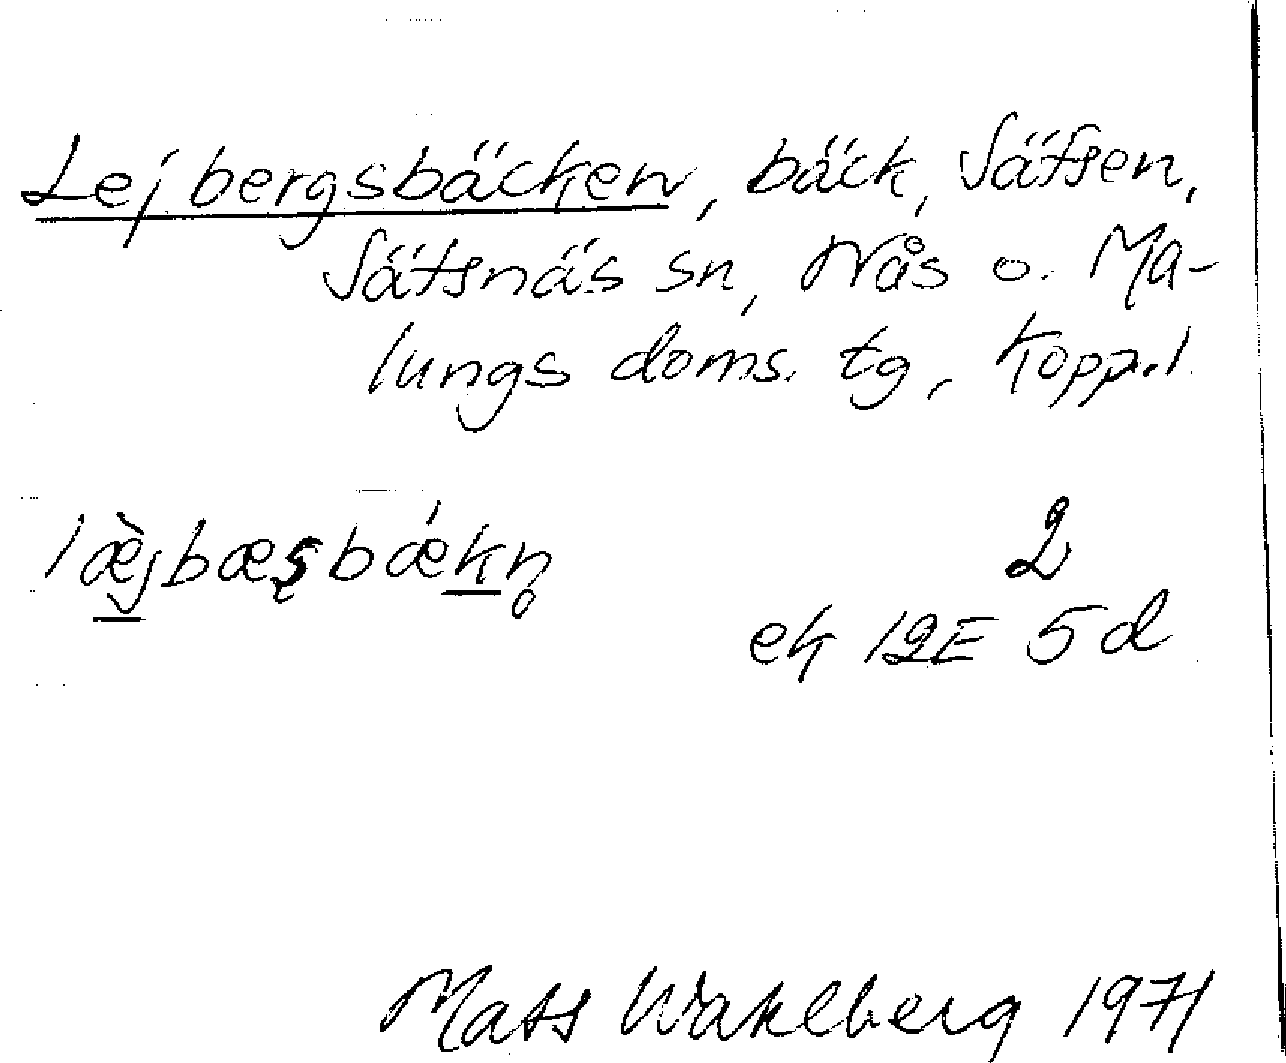 Lejbergsbäcken, bäck, Sätsen,
Sätsnäs sn, Nås o. Ma-
lungs doms. tg, Kopp.l.
læ̀jbæʂbǽkn̥ 2
ek 12E 5d
Mats Wahlberg 1971